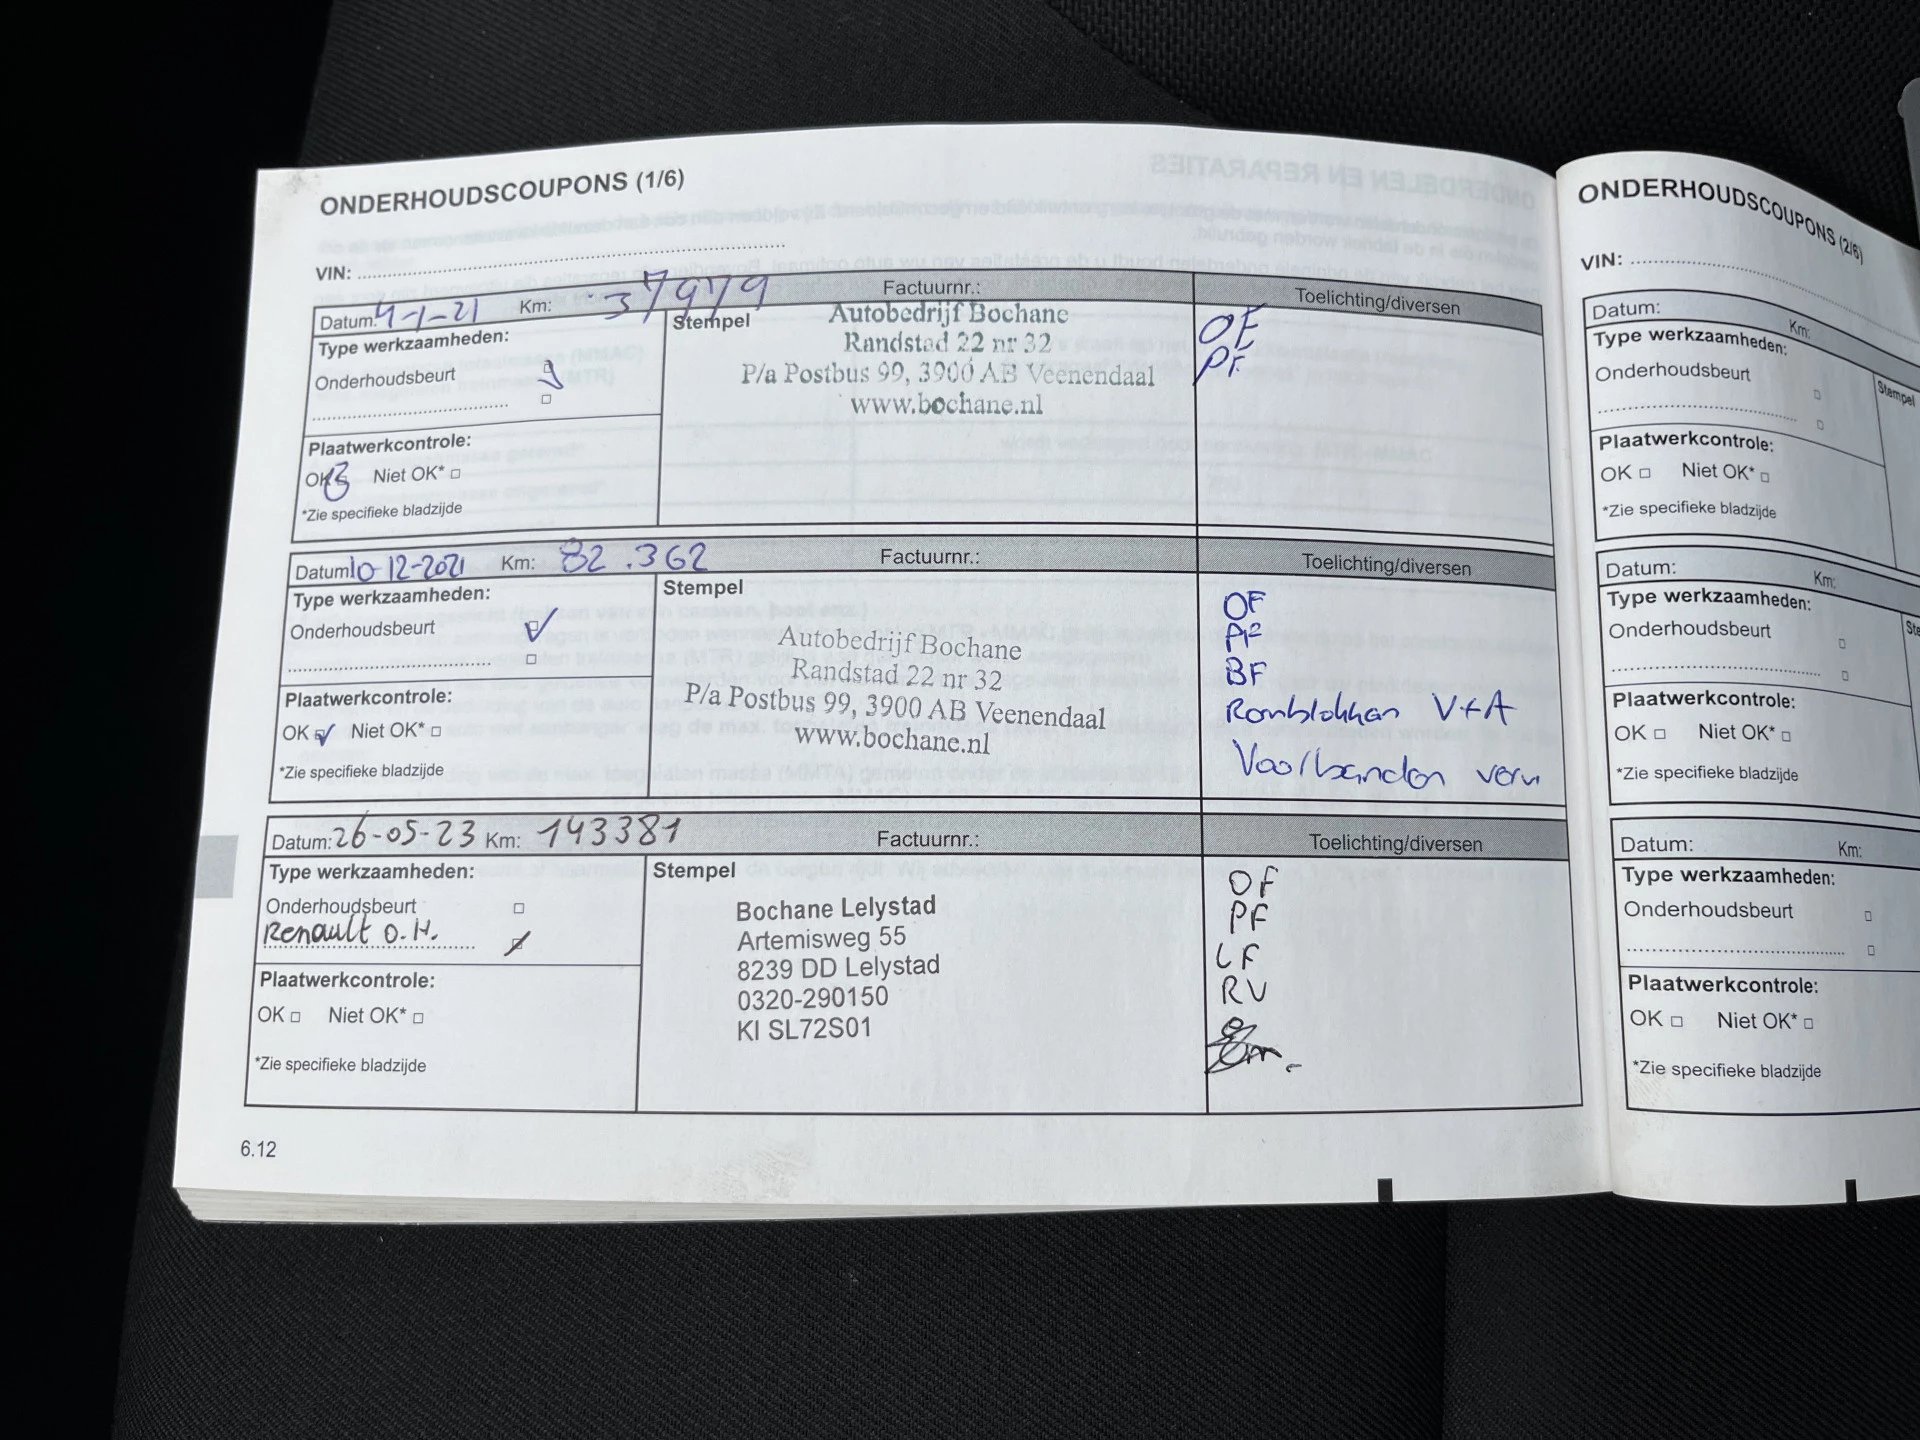 ONDERHOUDSCOUPONS (1/6)
VIN:
Datum: 4-1-21 Km: 37979 Factuurnr.: Toelichting/diversen
Type werkzaamheden:
Onderhoudsbeurt
Plaatwerkcontrole:
OK Niet OK*
*Zie specifieke bladzijde
Stempel
Autobedrijf Bochane
Randstad 22 nr 32
P/a Postbus 99, 3900 AB Veenendaal
www.bochane.nl
OF
PF
Datum: 10-12-2021 Km: 82.362 Factuurnr.: Toelichting/diversen
Type werkzaamheden:
Onderhoudsbeurt
Plaatwerkcontrole:
OK Niet OK*
*Zie specifieke bladzijde
Stempel
Autobedrijf Bochane
Randstad 22 nr 32
P/a Postbus 99, 3900 AB Veenendaal
www.bochane.nl
OF
PF
BF
Remblokken V+A
Voorbanden verv
Datum: 26-05-23 Km: 143381 Factuurnr.: Toelichting/diversen
Type werkzaamheden:
Onderhoudsbeurt
Renault O.H.
Plaatwerkcontrole:
OK Niet OK*
*Zie specifieke bladzijde
Stempel
Bochane Lelystad
Artemisweg 55
8239 DD Lelystad
0320-290150
KI SL72S01
OF
PF
LF
RV
6.12
ONDERHOUDSCOUPONS (2/6)
VIN:
Datum: Km:
Type werkzaamheden:
Onderhoudsbeurt
Stempel
Plaatwerkcontrole:
OK Niet OK*
*Zie specifieke bladzijde
Datum: Km:
Type werkzaamheden:
Onderhoudsbeurt
Ste
Plaatwerkcontrole:
OK Niet OK*
*Zie specifieke bladzijde
Datum: Km:
Type werkzaamheden:
Onderhoudsbeurt
Plaatwerkcontrole:
OK Niet OK*
*Zie specifieke bladzijde